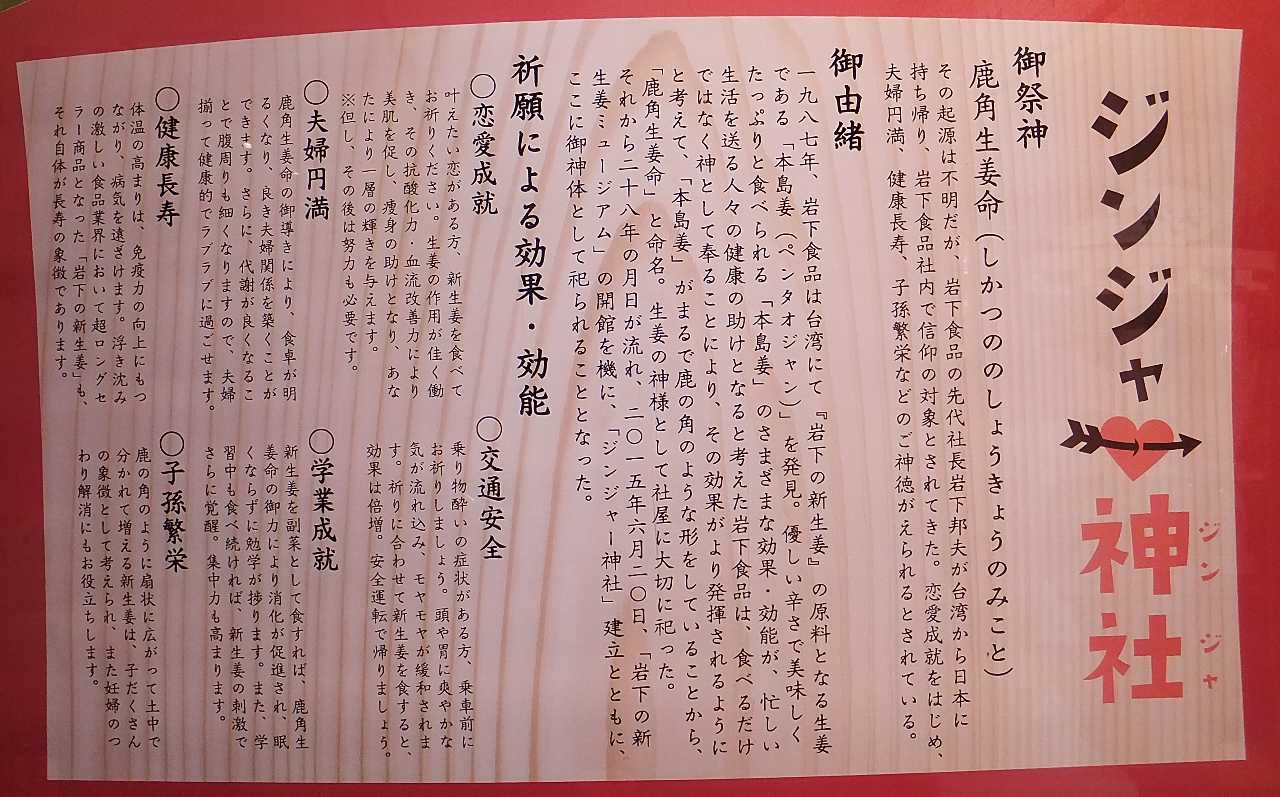 ジンジャー神社
ジンジャ
御祭神
鹿角生姜命（しかつののしょうきょうのみこと）
その起源は不明だが、岩下食品の先代社長岩下邦夫が台湾から日本に
持ち帰り、岩下食品社内で信仰の対象とされてきた。恋愛成就をはじめ、
夫婦円満、健康長寿、子孫繁栄などのご神徳がえられるとされている。
御由緒
一九八七年、岩下食品は台湾にて『岩下の新生姜』の原料となる生姜
である「本島姜（ペンタオジャン）」を発見。優しい辛さで美味しく
たっぷりと食べられる「本島姜」のさまざまな効果・効能が、忙しい
生活を送る人々の健康の助けとなると考えた岩下食品は、食べるだけ
ではなく神として奉ることにより、その効果がより発揮されるように
と考えて、「本島姜」がまるで鹿の角のような形をしていることから、
「鹿角生姜命」と命名。生姜の神様として社屋に大切に祀った。
それから二十八年の月日が流れ、二〇一五年六月二〇日、「岩下の新
生姜ミュージアム」の開館を機に、「ジンジャー神社」建立とともに、
ここに御神体として祀られることとなった。
祈願による効果・効能
〇恋愛成就
叶えたい恋がある方、新生姜を食べて
お祈りください。生姜の作用が佳く働
き、その抗酸化力・血流改善力により
美肌を促し、痩身の助けとなり、あな
たにより一層の輝きを与えます。
※但し、その後は努力も必要です。
〇交通安全
乗り物酔いの症状がある方、乗車前に
お祈りしましょう。頭や胃に爽やかな
気が流れ込み、モヤモヤが緩和されま
す。祈りに合わせて新生姜を食すると、
効果は倍増。安全運転で帰りましょう。
〇夫婦円満
鹿角生姜命の御導きにより、食卓が明
るくなり、良き夫婦関係を築くことが
できます。さらに、代謝が良くなるこ
とで腹周りも細くなりますので、夫婦
揃って健康的でラブラブに過ごせます。
〇学業成就
新生姜を副菜として食すれば、鹿角生
姜命の御力により消化が促進され、眠
くならずに勉学が捗ります。また、学
習中も食べ続ければ、新生姜の刺激で
さらに覚醒。集中力も高まります。
〇健康長寿
体温の高まりは、免疫力の向上にもつ
ながり、病気を遠ざけます。浮き沈み
の激しい食品業界において超ロングセ
ラー商品となった「岩下の新生姜」も、
それ自体が長寿の象徴であります。
〇子孫繁栄
鹿の角のように扇状に広がって土中で
分かれて増える新生姜は、子だくさん
の象徴として考えられ、また妊婦のつ
わり解消にもお役立ちします。